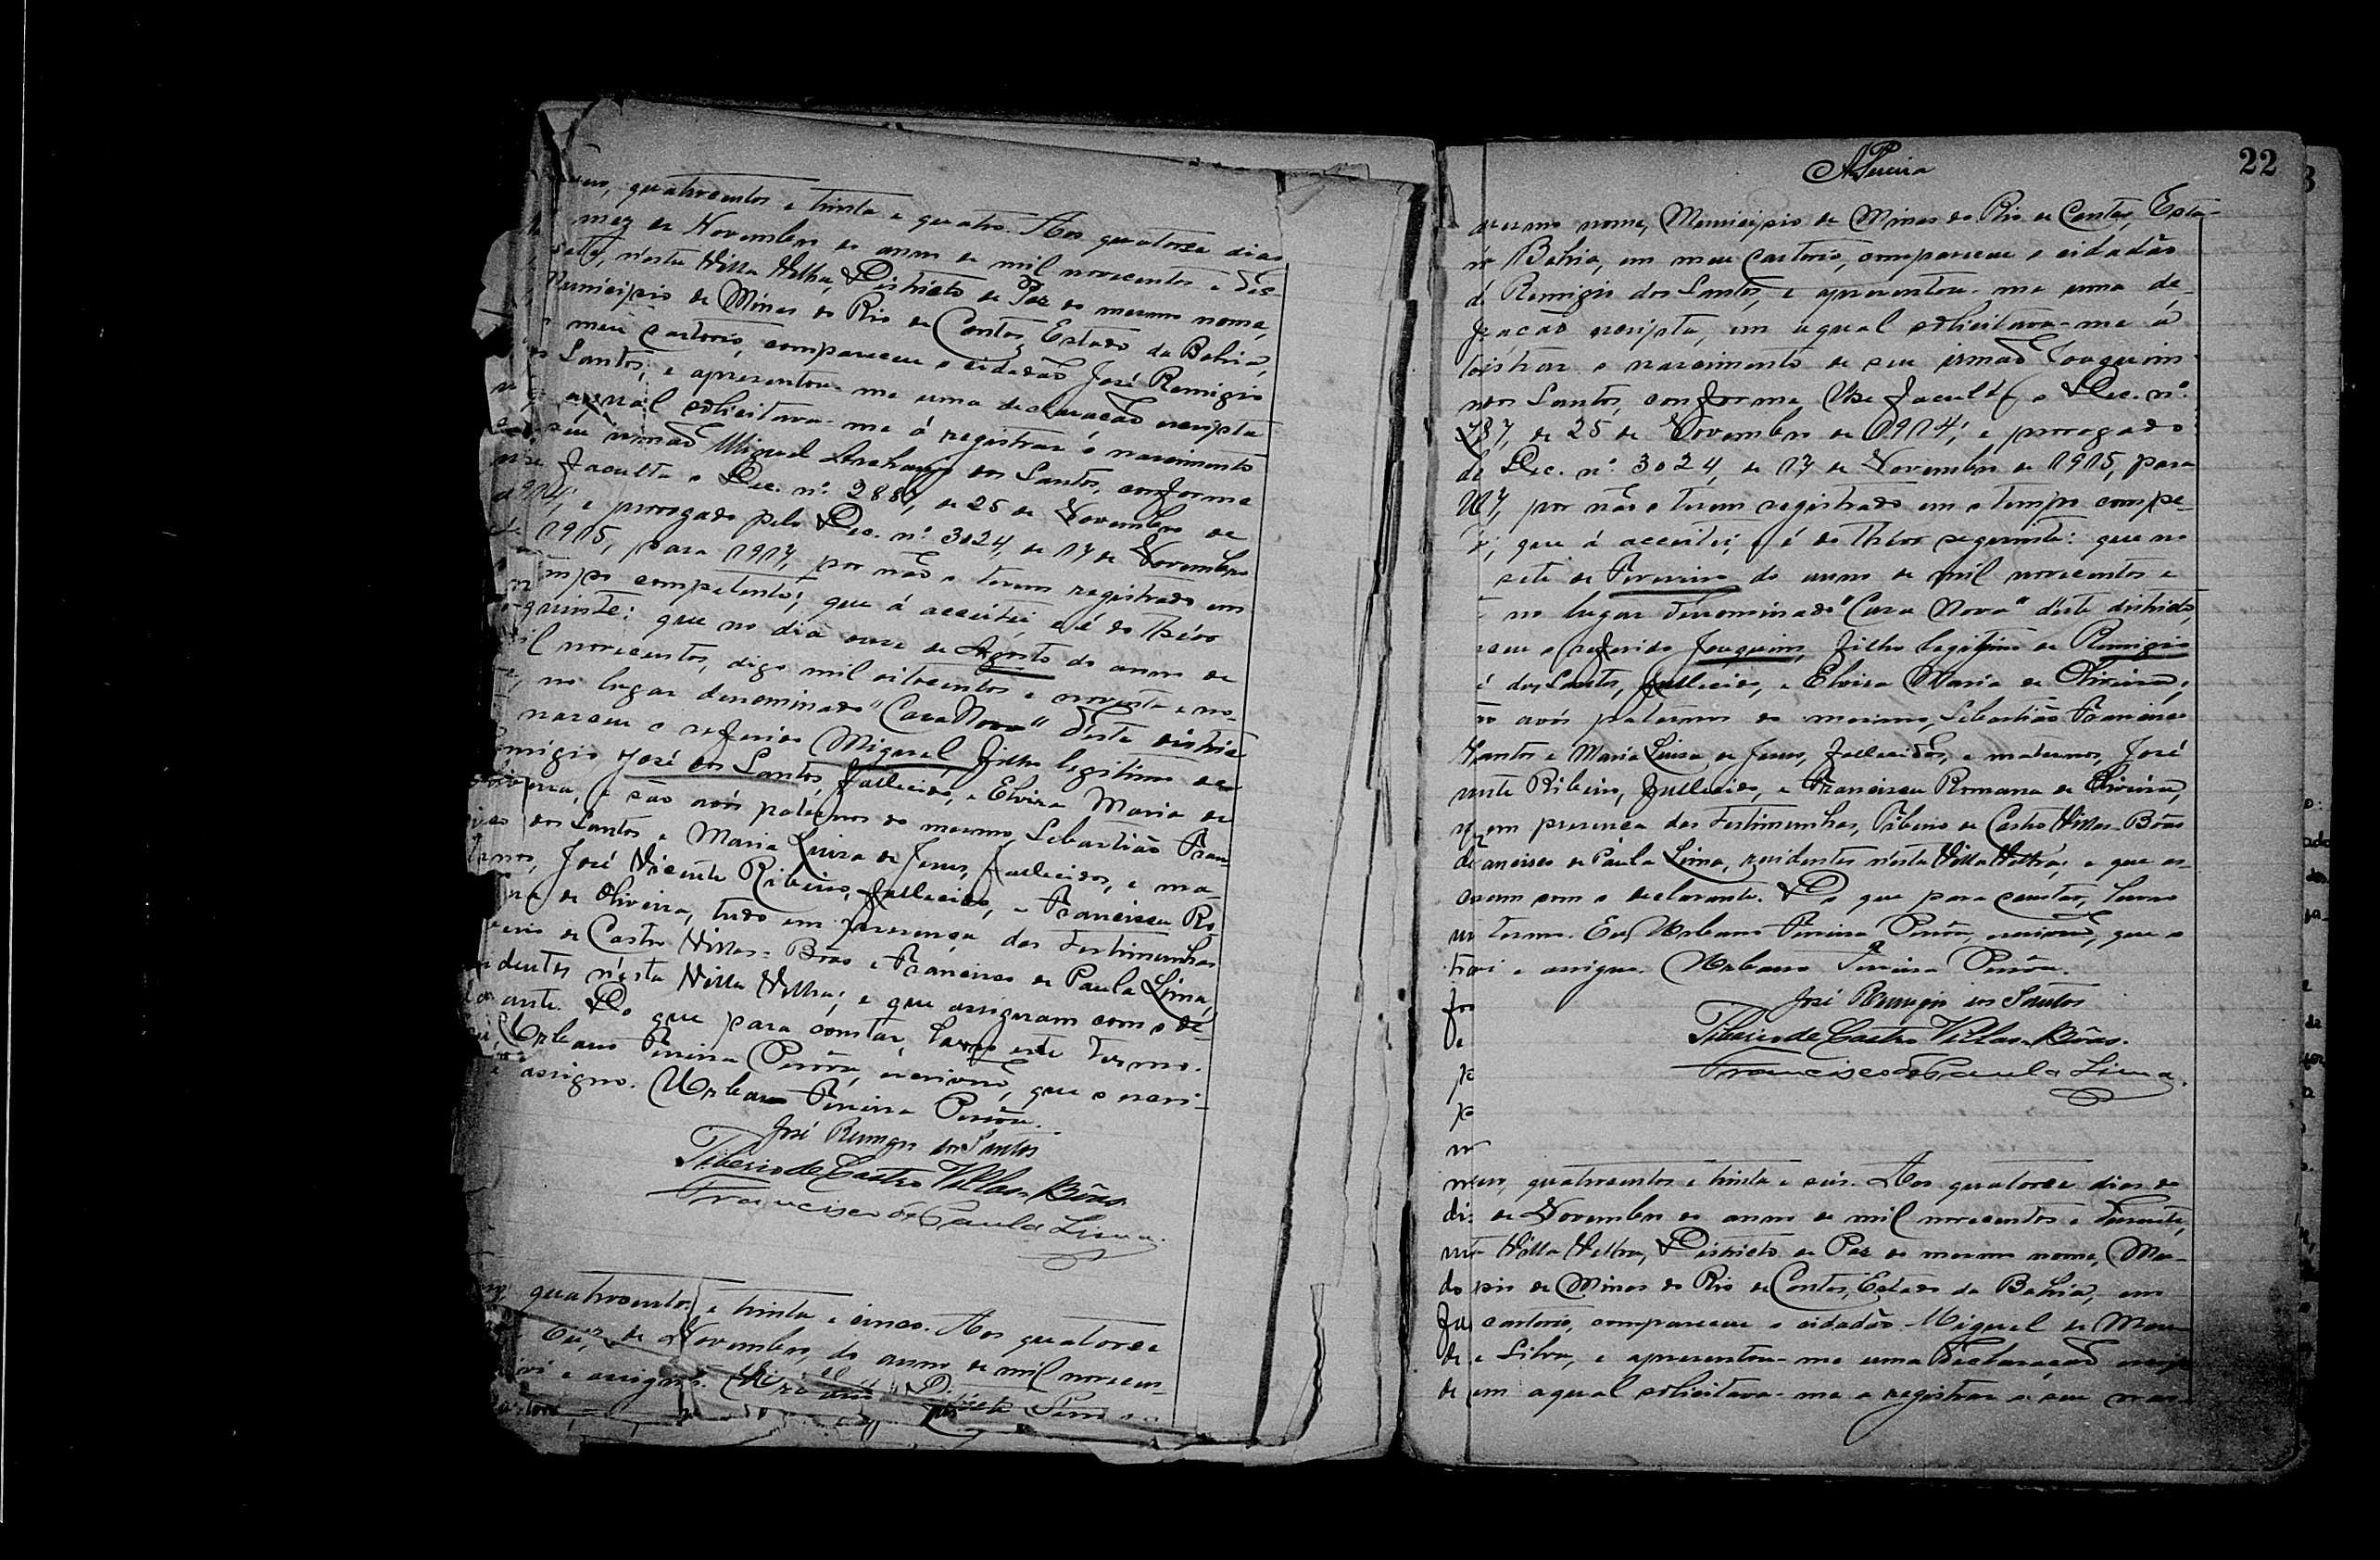 quatrocentos e trinta e quatro. Aos quatorze dias
mez de Novembro do anno de mil novecentos e dês-
sete, n'esta Villa Velha, Districto de Paz do mesmo nome,
Municipio de Minas do Rio de Contas, Estado da Bahia,
meu cartorio, compareceu o cidadão José Remigio
Santos, e apresentou-me uma declaração escripta
aqual solicitava-me á registrar o nascimento
seu irmão Miguel Archanjo dos Santos, conforme
faculta o Dec. nº 2887, de 25 de Novembro de
1914, e prorogado pelo Dec. nº 3024, de 17 de Novembro
1915, para 1917, por não o terem registrado em
tempo competente; que á acceitei, e é do theôr
seguinte: que no dia onze de Agosto do anno de
mil novecentos, digo mil oitocentos e noventa e no-
no lugar denominado "Casa Nova" d'este districto
nasceu o referido Miguel filho legitimo de
Remigio José dos Santos, fallecido, e Elvira Maria de
e são avós paternos do mesmo, Sebastião Fran-
dos Santos e Maria Luiza de Jesus, fallecidos, e ma-
ternos, José Vicente Ribeiro, fallecido, e Francisca Ro-
de Oliveira, tudo em presença das testimunhas
de Castro Villas-Bôas e Francisco de Paula Lima,
residentes n'esta Villa Velha; e que assignam com o de-
clarante. Do que para constar, lavro este termo.
Urbano Pereira escrivão, que o escri-
e assigno. Urbano Pereira
José Remigio dos Santos
Tiberio de Castro Villas-Bôas
Francisco de Paula Lima
quatrocentos e trinta e cinco. Aos quatorze
de Novembro, do anno de mil novecen-
e assigno.
APereira
22
mesmo nome, Municipio de Minas do Rio de Contas, Esta-
Bahia, em meu cartorio, compareceu o cidadão
Remigio dos Santos, e apresentou-me uma de-
escripta, em aqual solicitava-me á
registrar o nascimento de seu irmão Joaquim
dos Santos, conforme lhe faculta o Dec. nº
de 25 de Novembro de 1914, e prorogado
Dec. nº 3024, de 17 de Novembro de 1915, para
por não o terem registrado em o tempo compe-
que á acceitei, e é do theôr seguinte: que no
sete de Fevereiro do anno de mil novecentos e
no lugar denominado "Casa Nova" d'este districto,
nasceu o referido Joaquim, filho legitimo de Remigio
dos Santos, fallecido, e Elvira Maria de Oliveira;
avós paternos do mesmo, Sebastião Francisco
Santos e Maria Luiza de Jesus, fallecidos, e maternos, José
Vicente Ribeiro, fallecido, e Francisca Romana de Oliveira,
em presença das testimunhas, Tiberio de Castro Villas-Bôas
Francisco de Paula Lima, residentes n'esta Villa Velha; e que as-
signam com o declarante. Do que para constar, lavro
termo. Eu, Urbano Pereira escrivão, que o
e assigno. Urbano Pereira
José Remigio dos Santos
Tiberio de Castro Villas-Bôas.
Francisco de Paula Lima.
quatrocentos e trinta e seis. Aos quatorze dias do
de Novembro do anno de mil novecentos e dezesete,
Villa Velha, Districto de Paz do mesmo nome, Mu-
de Minas do Rio de Contas, Estado da Bahia, em
cartorio, compareceu o cidadão Miguel de
e Silva, e apresentou-me uma declaração
em aqual solicitava-me a registrar o seu nas-